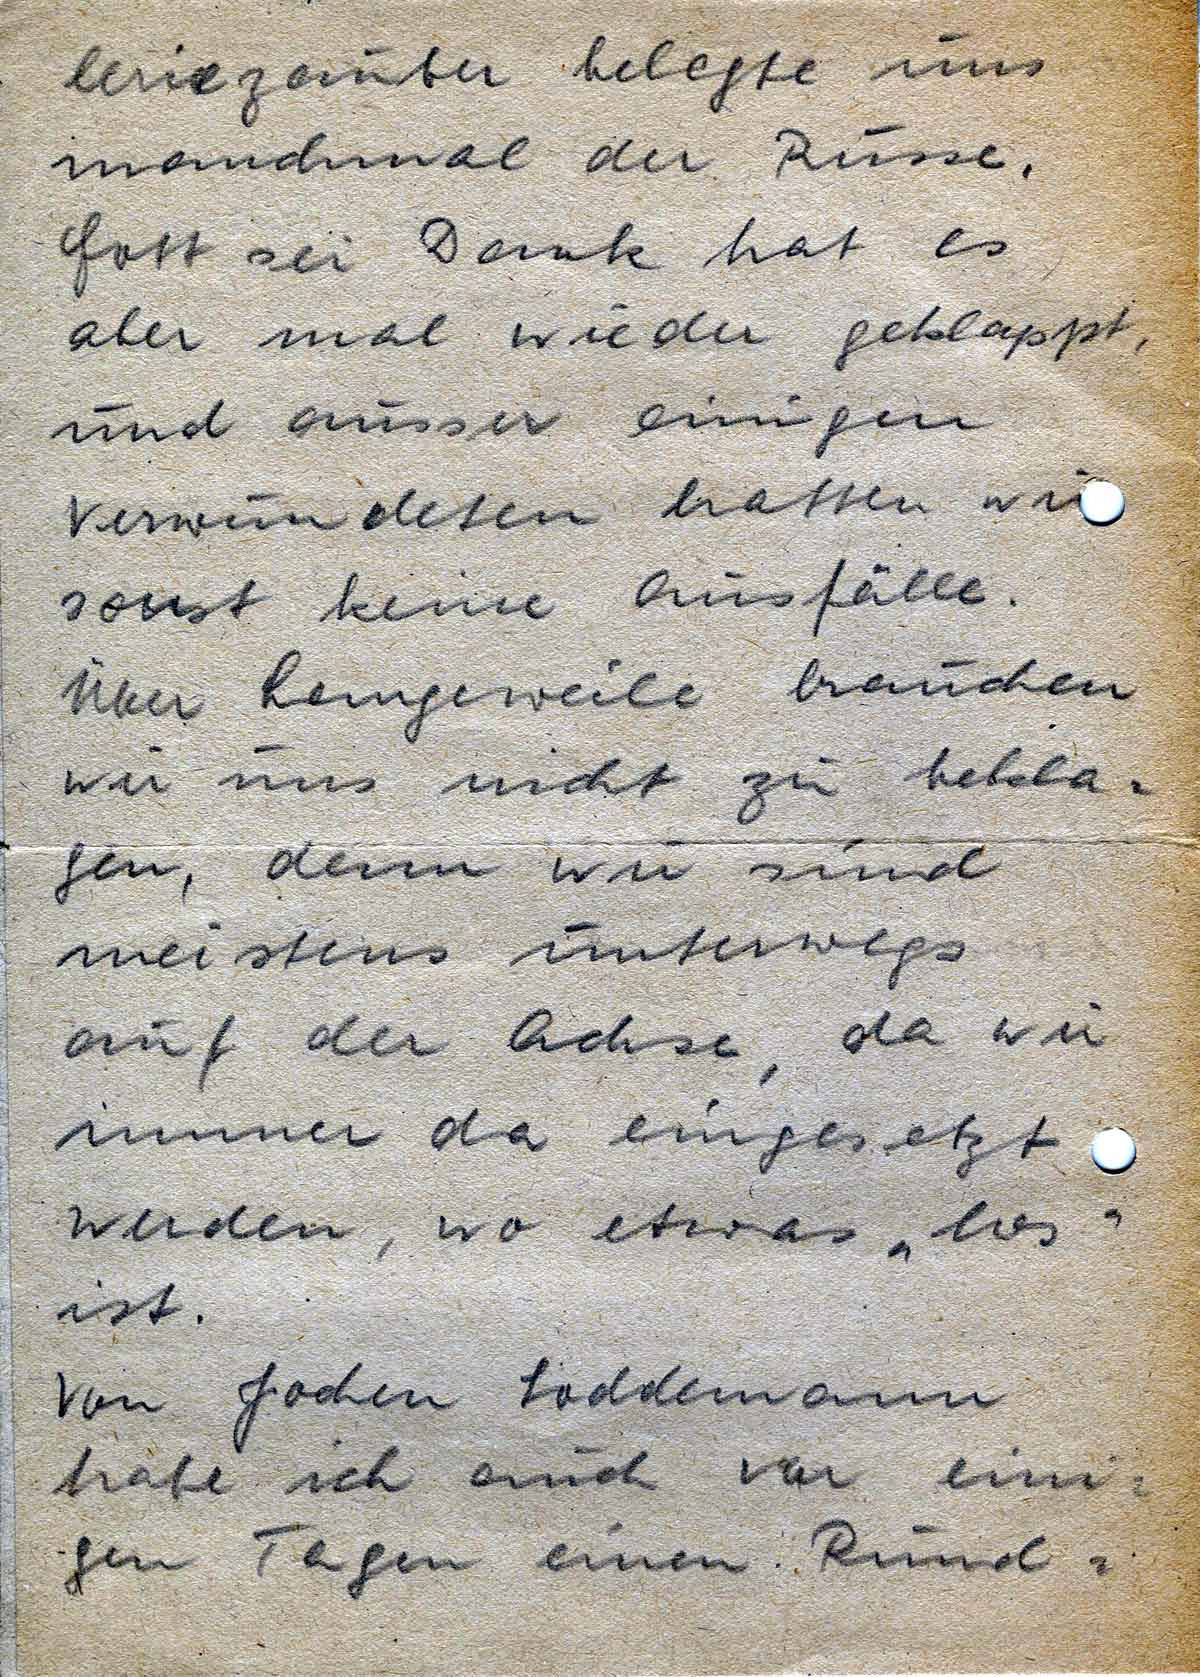 leriezauber belegte uns
manchmal der Russe.
Gott sei Dank hat es
aber mal wieder geklappt,
und ausser einigen
Verwundeten hatten wir
sonst keine Ausfälle.
Über Langeweile brauchen
wir uns nicht zu bekla=
gen, denn wir sind
meistens unterwegs
auf der Achse, da wir
immer da eingesetzt
werden, wo etwas „los“
ist.
Von Jochen Loddemann
habe ich auch vor eini=
gen Tagen einen Rund=